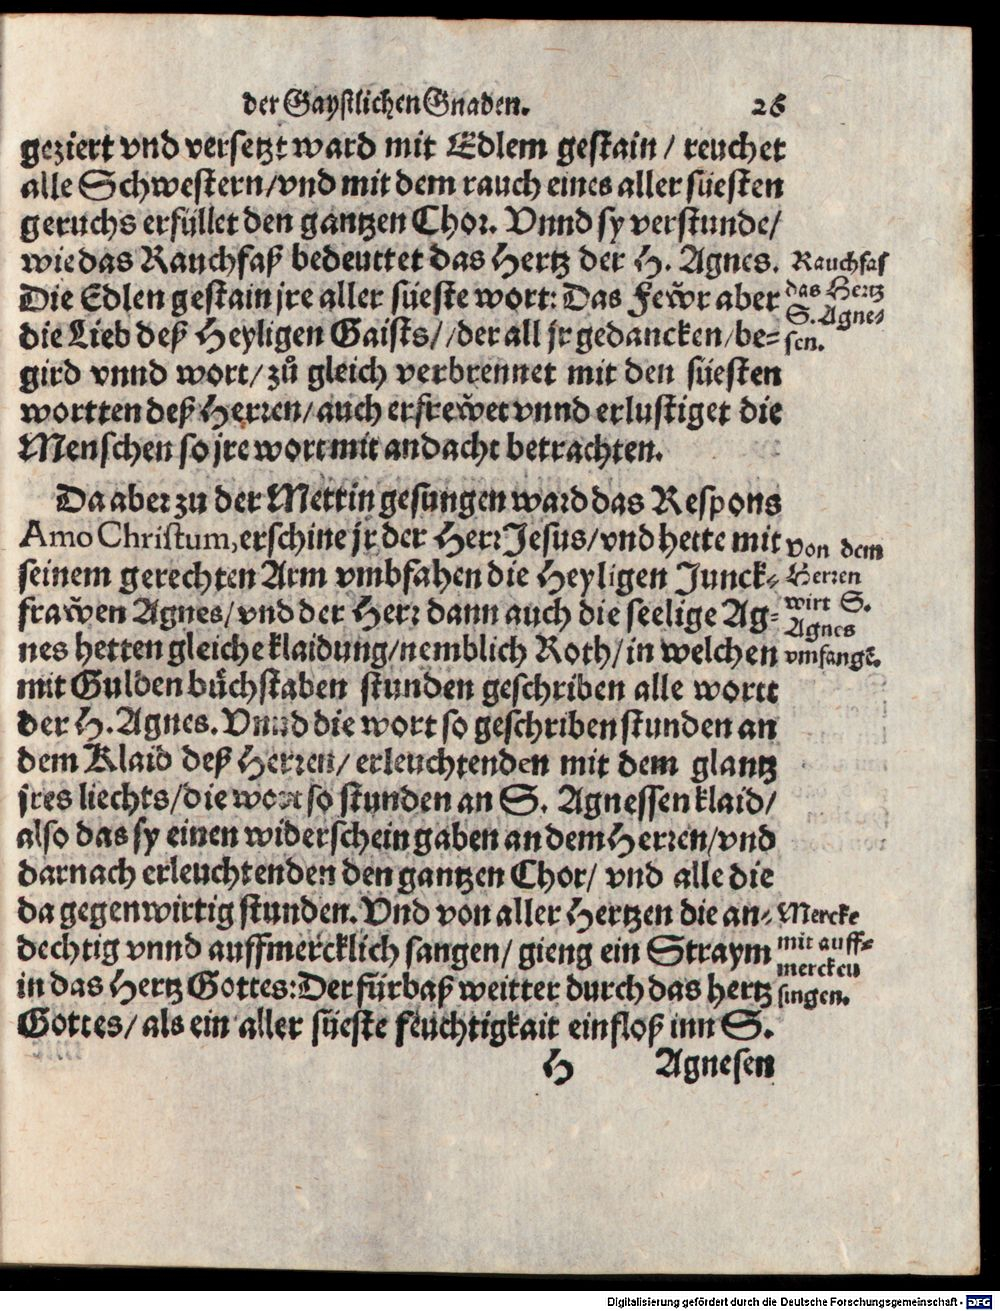 der Gaystlichen Gnaden. 26
geziert vnd versetzt ward mit Edlem gestain / reuchet
alle Schwestern/vnd mit dem rauch eines aller süesten
geruchs erfüllet den gantzen Chor. Vnnd sy verstunde/
wie das Rauchfaß bedeuttet das Hertz der H. Agnes.
Die Edlen gestain jre aller süeste wort: Das Fewr aber
die Lieb deß Heyligen Gaists/ /der all jr gedancken/be-
gird vnnd wort/ zů gleich verbrennet mit den süesten
wortten deß Herren/auch erfrewet vnnd erlustiget die
Menschen so jre wort mit andacht betrachten.
Rauchfas
das Hertz
S. Agne-
sen.
Da aber zu der Mettin gesungen ward das Respons
Amo Christum, erschine jr der Herr Jesus/vnd hette mit
seinem gerechten Arm vmbfahen die Heyligen Junck-
frawen Agnes/vnd der Herr dann auch die seelige Ag-
nes hetten gleiche klaidung/nemblich Roth/in welchen
mit Gulden bůchstaben stunden geschriben alle wortt
der H. Agnes. Vnnd die wort so geschriben stunden an
dem Klaid deß Herren/ erleuchtenden mit dem glantz
jres liechts/die wort so stunden an S. Agnessen klaid/
also das sy einen widerschein gaben an dem Herren/vnd
darnach erleuchtenden den gantzen Chor/ vnd alle die
da gegenwirtig stunden. Vnd von aller Hertzen die an-
dechtig vnnd auffmercklich sangen/ gieng ein Straym
in das Hertz Gottes: Der fürbaß weitter durch das hertz
Gottes/ als ein aller süeste feuchtigkait einfloß inn S.
von dem
Herren
wirt S.
Agnes
vmfangẽ.
Mercke
mit auff-
mercken
singen.
H Agnesen
Digitalisierung gefördert durch die Deutsche Forschungsgemeinschaft - DFG